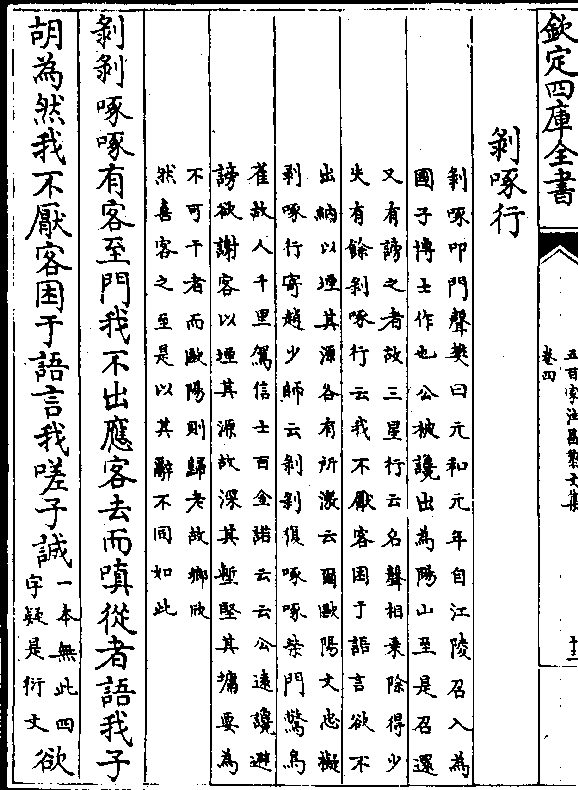 欽定四庫全書
五百家注昌黎文集
卷四
十二
剝啄行
剝啄叩門聲樊曰元和元年自江陵召入為
國子博士作也公被讒出為陽山至是召還
又有謗之者故三星行云名聲相乘除得少
失有餘剝啄行云我不厭客困于語言欲不
出納以堙其源各有所激云爾歐陽文忠擬
剥啄行寄趙少師云剥剥復啄啄柴門驚鳥
雀故人千里駕信士百金諾云云公遠讒避
謗欲謝客以堙其源故深其塹堅其墉要為
不可干者而歐陽則歸老故鄉欣
然喜客之至是以其辭不同如此
剝剝啄啄有客至門我不出應客去而嗔從者語我子
胡為然我不厭客困于語言我嗟子誠一本無此四
字疑是衍文欲